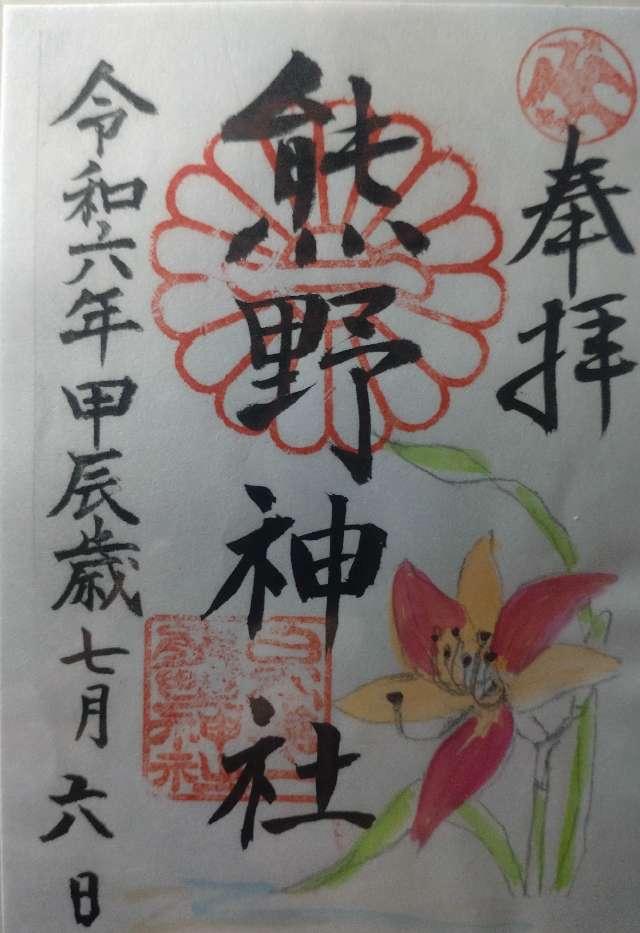 奉拝
熊野神社
令和六年甲辰歳七月六日